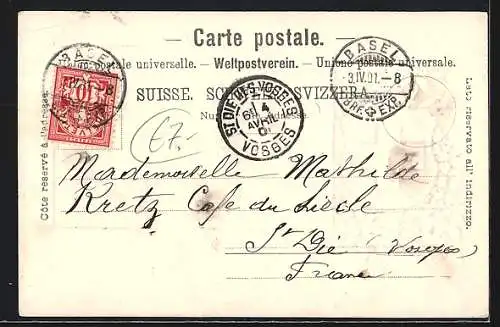 Carte postale.
postale universelle. — Weltpostverein. — Unione postale universale.
SUISSE. SVIZZERA.
BASEL
10
BASEL
3.IV.01.-8
BRF. EXP.
ST DIÉ DES VOSGES
6H
4
AVRIL
VOSGES
Côté réservé à l'adresse.
Lato riservato all' indirizzo.
E7.-
Mademoiselle Mathilde
Kretz Cafe du Siècle
St Dié Vosges
France